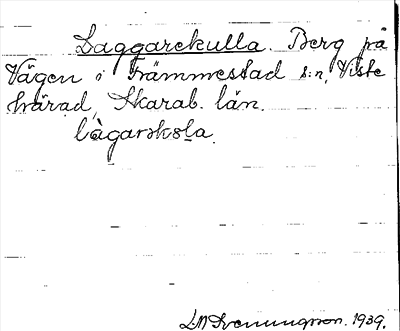 Laggarekulla. Berg på
Vägen i Främmestad s:n, Viste
härad, Skarab. län.
1939.